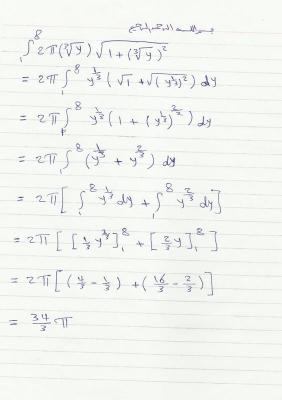 ∫₁⁸ 2π(∛y) √(1+(∛y)²)
= 2π ∫₁⁸ y^(1/3) (√1 + √(y^(1/3))²) dy
= 2π ∫₁⁸ y^(1/3) (1 + (y^(1/3))^(2/2)) dy
= 2π ∫₁⁸ (y^(1/3) + y^(2/3)) dy
= 2π [ ∫₁⁸ y^(1/3) dy + ∫₁⁸ y^(2/3) dy ]
= 2π [ [1/3 y^(4/3)]₁⁸ + [2/3 y]₁⁸ ]
= 2π [ (4/3 - 1/3) + (16/3 - 2/3) ]
= 34/3 π